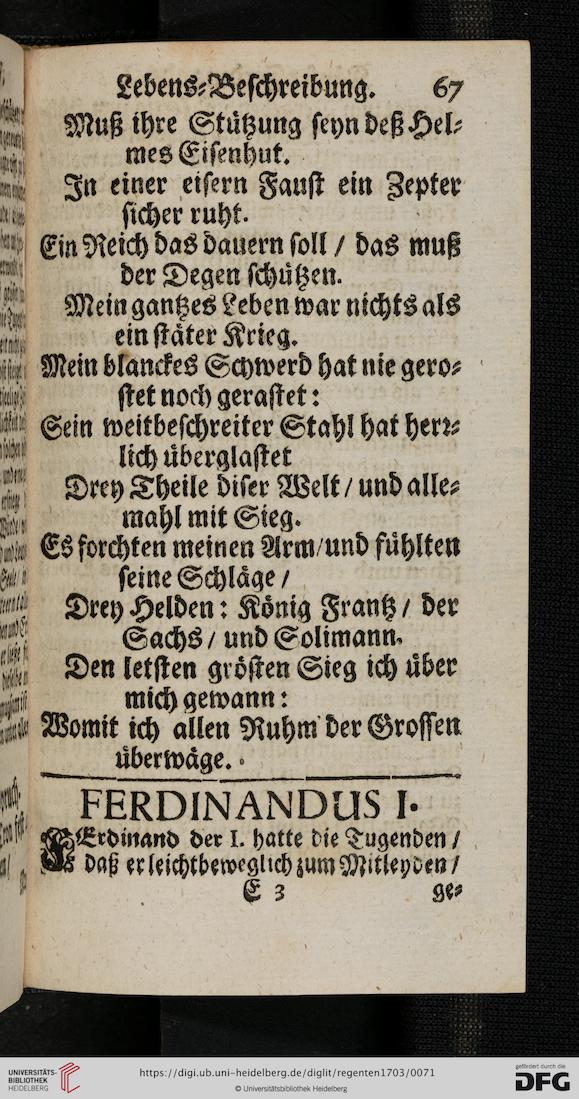 Lebens-Beschreibung. 67
Muß ihre Stützung seyn deß Hel-
mes Eisenhut.
In einer eisern Faust ein Zepter
sicher ruht.
Ein Reich das dauern soll / das muß
der Degen schützen.
Mein gantzes Leben war nichts als
ein stäter Krieg.
Mein blanckes Schwerd hat nie gero-
stet noch gerastet:
Sein weitbeschreiter Stahl hat herr-
lich überglastet
Drey Theile diser Welt / und alle-
mahl mit Sieg.
Es forchten meinen Arm/und fühlten
seine Schläge /
Drey Helden: König Frantz / der
Sachs / und Solimann.
Den letsten grösten Sieg ich über
mich gewann:
Womit ich allen Ruhm der Grossen
überwäge.
FERDINANDUS I.
FErdinand der I. hatte die Tugenden /
daß er leichtbeweglich zum Mitleyden /
E 3 ge-
UNIVERSITÄTS-
BIBLIOTHEK
HEIDELBERG
https://digi.ub.uni-heidelberg.de/diglit/regenten1703/0071
© Universitätsbibliothek Heidelberg
gefördert durch die
DFG